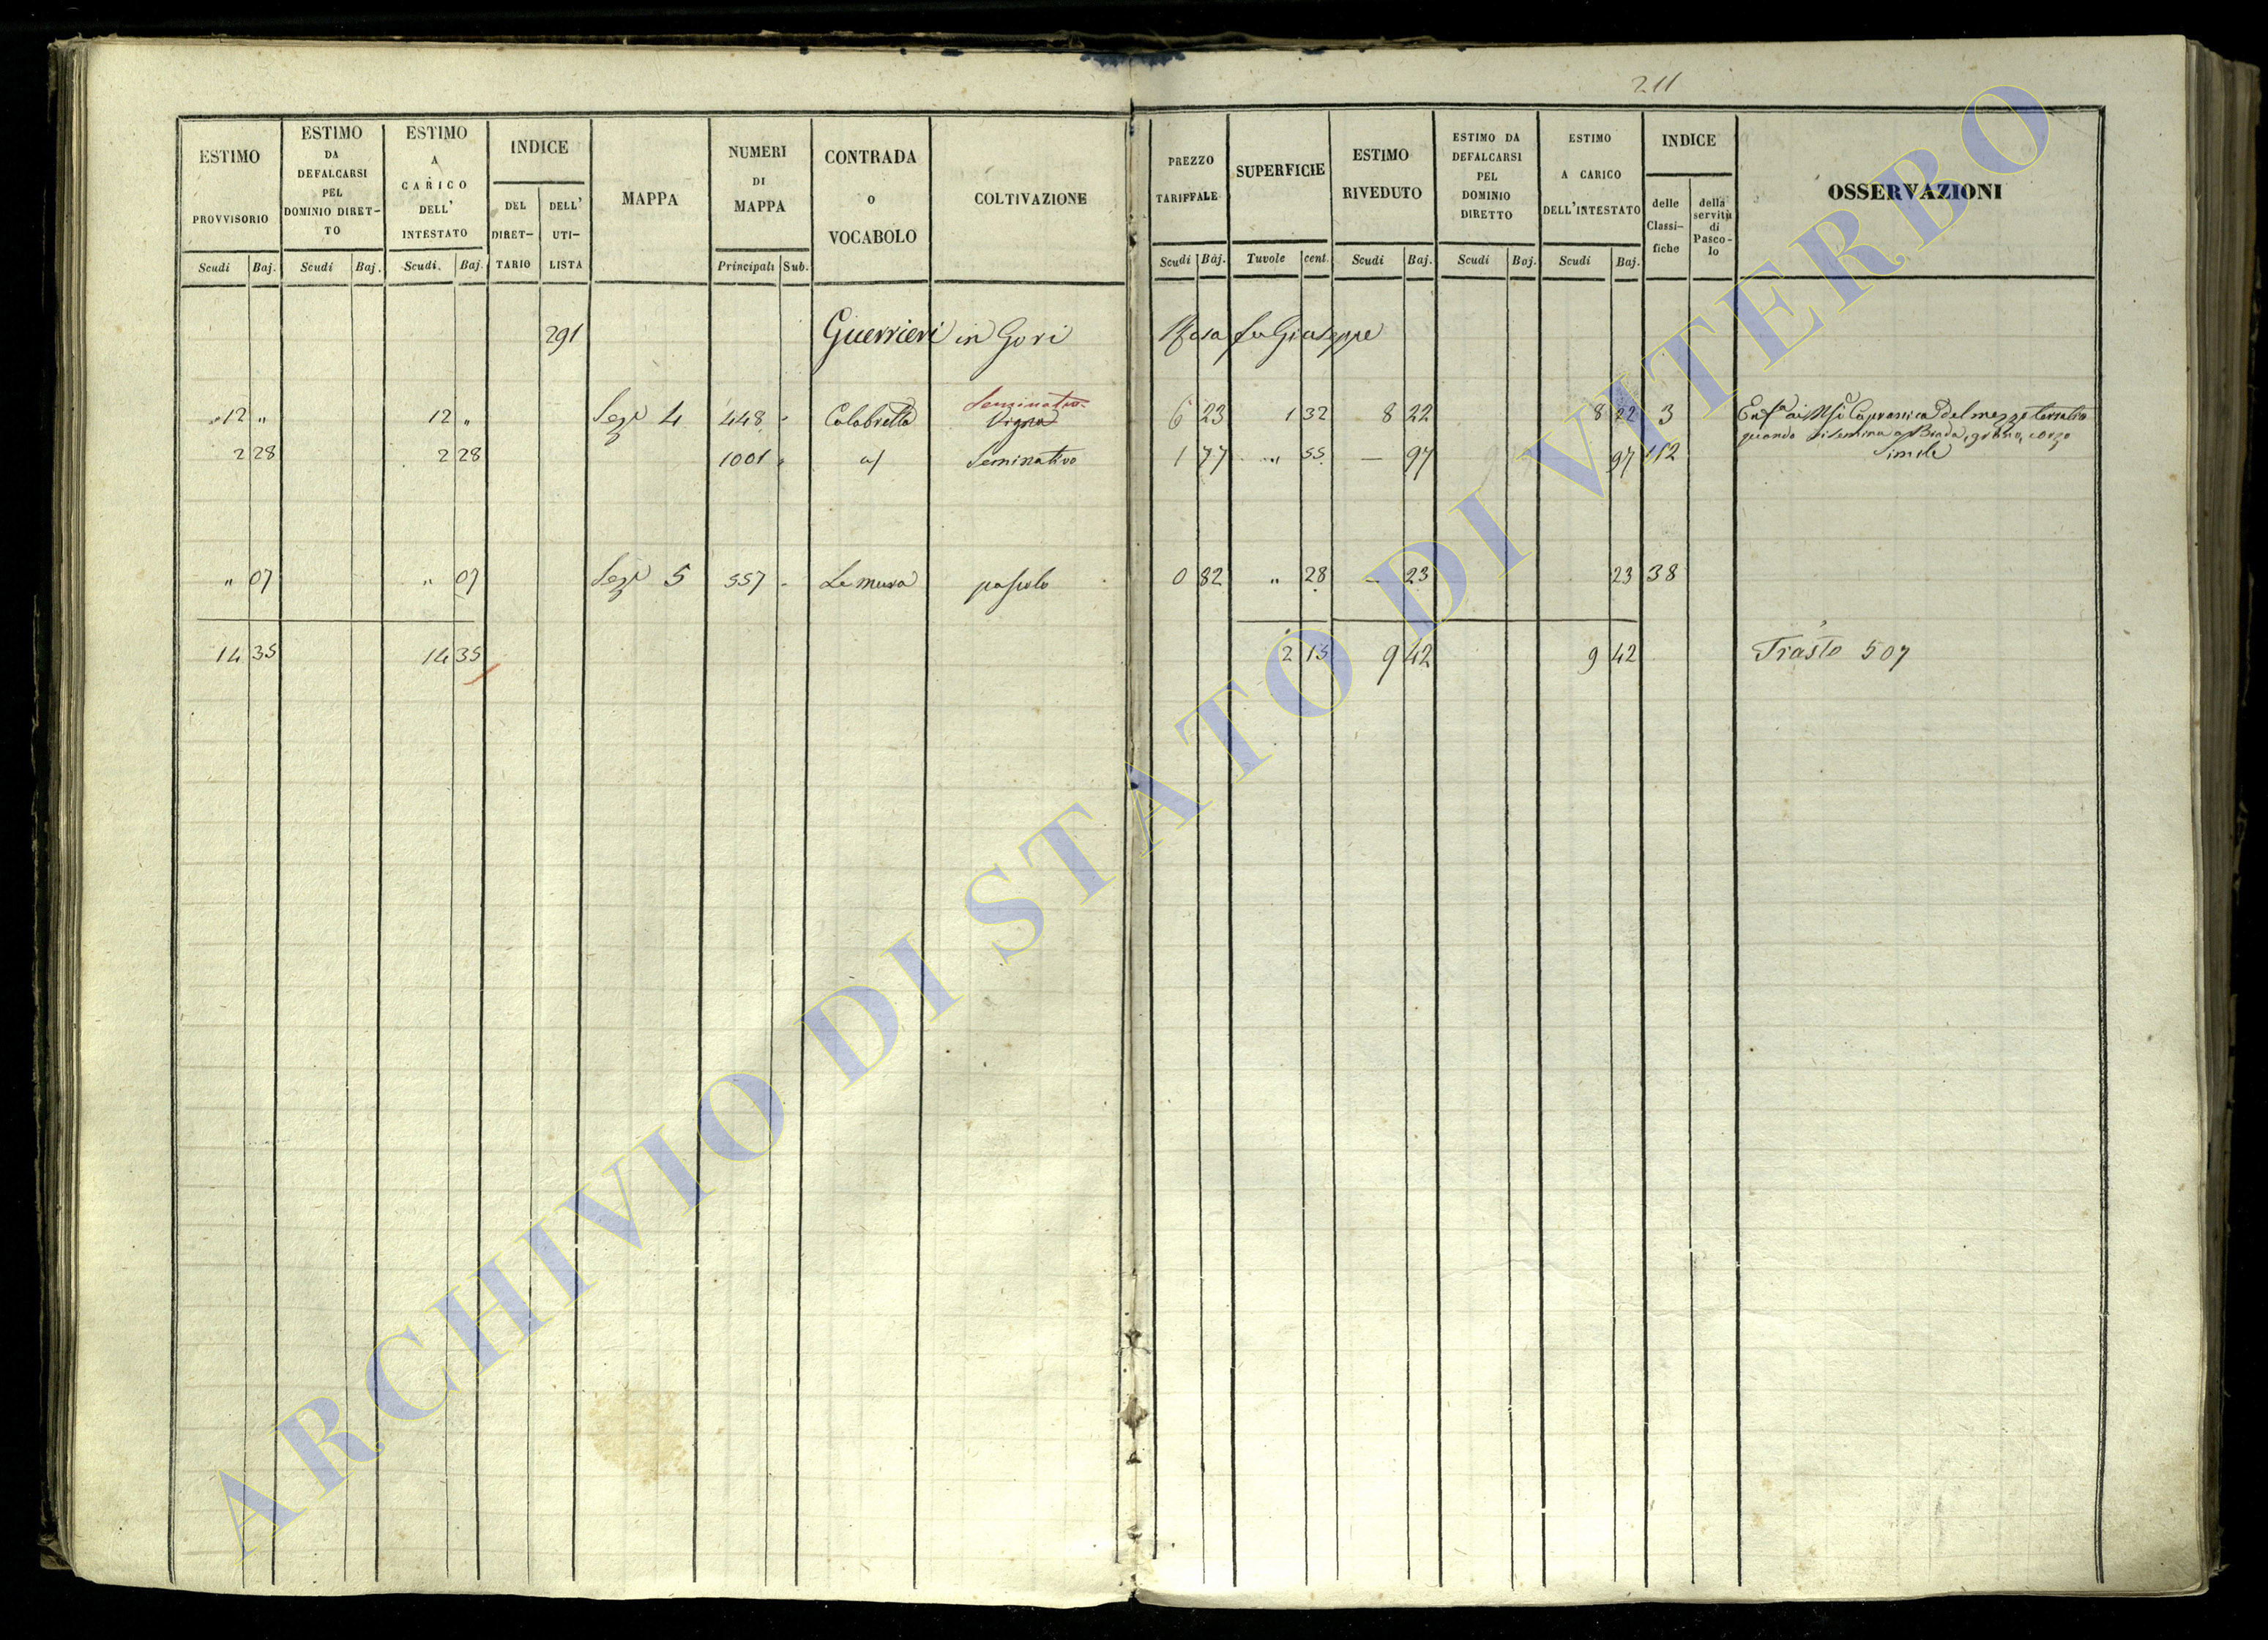 211
ESTIMO PROVVISORIO Scudi Baj. ESTIMO DA DEFALCARSI PEL DOMINIO DIRETTO Scudi Baj. ESTIMO A CARICO DELL' INTESTATO Scudi. Baj. INDICE DEL DIRETTARIO DELL' UTILISTA MAPPA NUMERI DI MAPPA Principali Sub. CONTRADA O VOCABOLO COLTIVAZIONE PREZZO TARIFFALE Scudi Baj. SUPERFICIE Tavole cent. ESTIMO RIVEDUTO Scudi Baj. ESTIMO DA DEFALCARSI PEL DOMINIO DIRETTO Scudi Baj. ESTIMO A CARICO DELL'INTESTATO Scudi Baj. INDICE delle Classifiche della servitù di Pascolo OSSERVAZIONI
291 Guerrieri in Gori Rosa fu Giuseppe
Seminativo
12 " 12 " Sez.e 4 448 Calabretta Vigna 6 23 1 32 8 22 8 22 3 Capranica del mezzo terratico
quando si semina a Biada, grano, orzo
2 28 2 28 1001 a/ Seminativo 1 77 " 55 — 97 97 112 Simile
" 07 " 07 Sez.e 5 557 Le mura pascolo 0 82 " 28 — 23 23 38
14 35 14 35 2 15 9 42 9 42 Trasto 507
ARCHIVIO DI STATO DI VITERBO